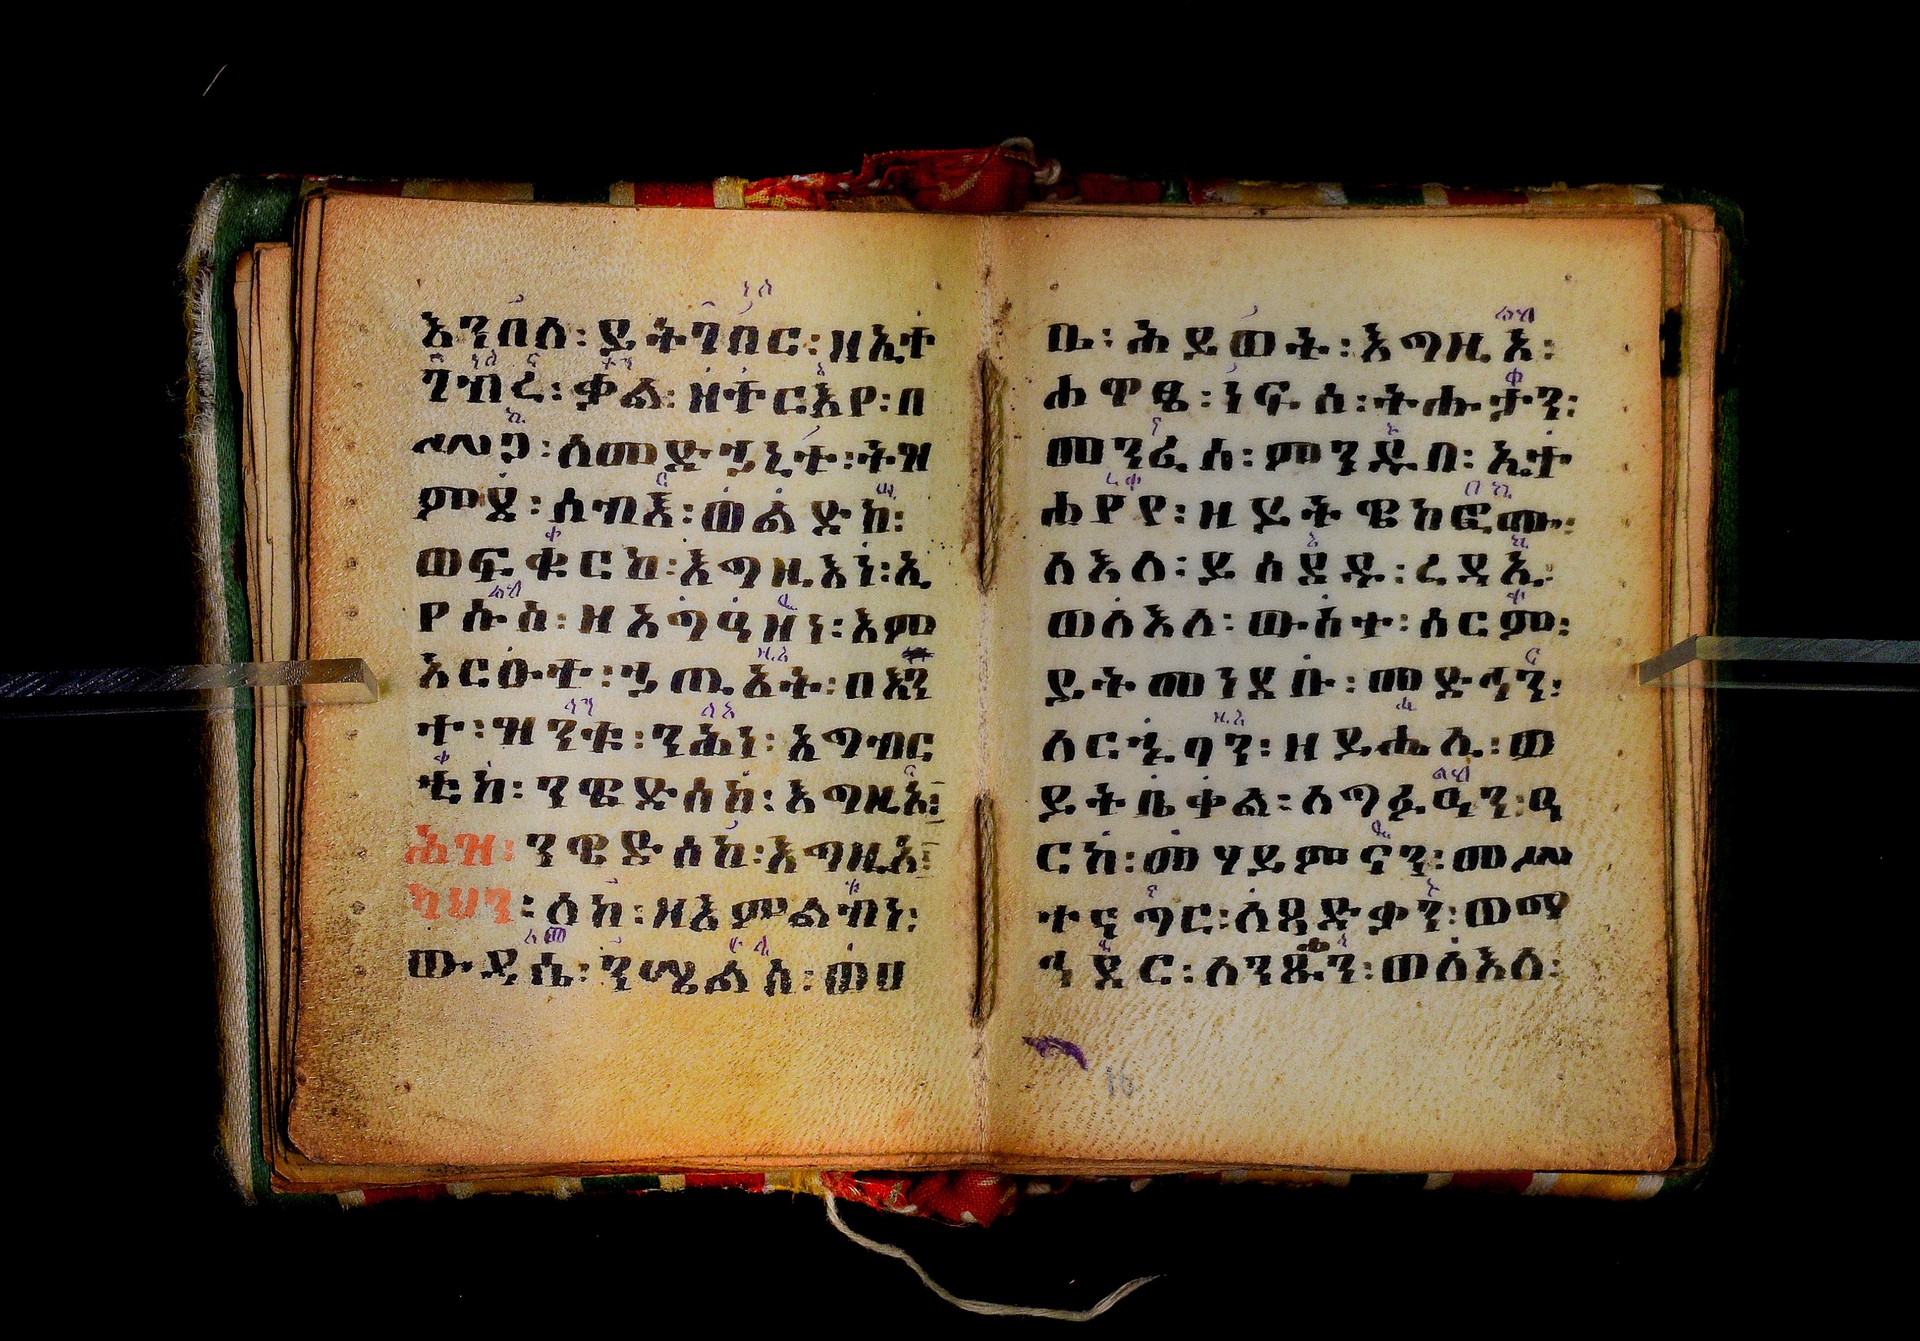 እንበለ፡ ይትኀበር፡ ዘኢተ
ኀብረ፡ ቃል፡ ዘተርእየ፡ በ
ሥጋ፡ ለመድኃኒተ፡ ትዝ
ምደ፡ ሰብእ፡ ወልድከ፡
ወፍቁርከ፡ እግዚእነ፡ ኢ
የሱስ፡ ዘአግዓዘነ፡ እም
እርዑተ፡ ኃጢአት፡ በእን
ተ፡ ዝንቱ፡ ንሕነ፡ አግብር
ቲከ፡ ንዌድሰከ፡ እግዚአ፡
ሕዝ፡ ንዌድሰከ፡ እግዚአ፡
ካህን፡ ለከ፡ ዘእምልብነ፡
ውዳሴ፡ ንሤልስ፡ ወሀ
ቤ፡ ሕይወት፡ እግዚአ፡
ሐዋፄ፡ ነፍስ፡ ትሑታን፡
መንፈሰ፡ ምንዱበ፡ ኢተ
ሐየየ፡ ዘይትዌከፎሙ፡
ለእለ፡ ይሰደዱ፡ ረዳኢ
ወለእለ፡ ውስተ፡ ሰርም፡
ይትመነደቡ፡ መድኃን፡
ለርኁባን፡ ዘይሔሊ፡ ወ
ይትቤቀል፡ ለግፉዓን፡ ዓ
ርከ፡ መሃይምናን፡ መሥ
ተናግር፡ ለጻድቃን፡ ወማ
ኅደር፡ ለንጹን፡ ወለእለ፡